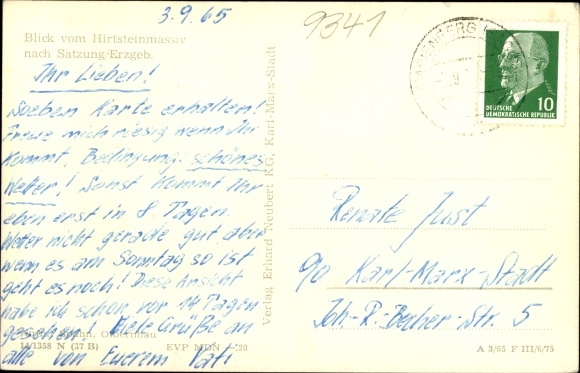 3.9.65
9341
Blick vom Hirtsteinmassiv
nach Satzung/Erzgeb.
Ihr Lieben!
Soeben Karte erhalten!
Freue mich riesig wenn Ihr
kommt. Bedingung: schönes
Wetter! Sonst kommt Ihr
eben erst in 8 Tagen.
Wetter nicht gerade gut, aber
wenn es am Sonntag so ist
geht es noch! Diese Ansicht
habe ich schon vor 14 Tagen
gesehen! Viele Grüße an
alle von Euerem Vati
14/1358 N (37 B) EVP MDN -,20
Verlag Erhard Neubert KG, Karl-Marx-Stadt
DEUTSCHE
DEMOKRATISCHE REPUBLIK
10
Renate Just
90 Karl-Marx-Stadt
Joh.-R.-Becher-Str. 5
A 3/65 F III/6/75